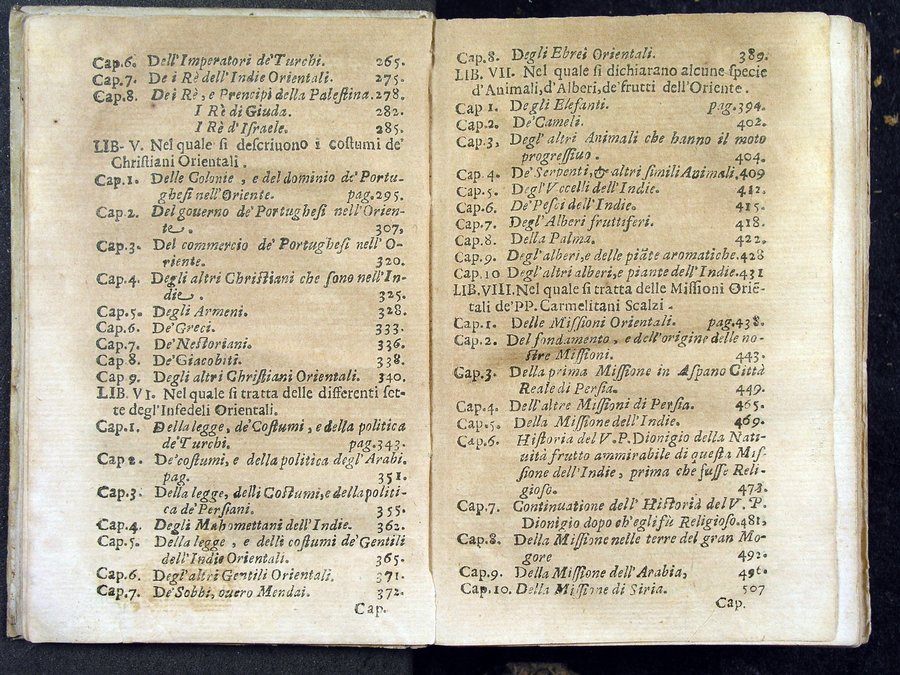 Cap.6. Dell'Imperatori de'Turchi. 265.
Cap.7. De i Rè dell'Indie Orientali. 275.
Cap.8. Dei Rè, e Prencipi della Palestina. 278.
I Rè di Giuda. 282.
I Rè d'Israele. 285.
LIB- V. Nel quale si descriuono i costumi de'
Christiani Orientali.
Cap.1. Delle Colonie, e del dominio de'Portu-
ghesi nell'Oriente. pag.295.
Cap.2. Del gouerno de'Portughesi nell'Orien-
te. 307,
Cap.3. Del commercio de'Portughesi nell'O-
riente. 320.
Cap.4. Degli altri Christiani che sono nell'In-
die. 325.
Cap.5. Degli Armeni. 328.
Cap.6. De'Greci. 333.
Cap.7. De'Nestoriani. 336.
Cap 8. De'Giacobiti. 338.
Cap 9. Degli altri Christiani Orientali. 340.
LIB. VI. Nel quale si tratta delle differenti set-
te degl'Infedeli Orientali.
Cap.1. Della legge, de'Costumi, e della politica
de'Turchi. pag.343.
Cap 2. De'costumi, e della politica degl'Arabi.
pag. 351.
Cap.3. Della legge, delli Costumi, e della politi-
ca de'Persiani. 355.
Cap.4. Degli Mahomettani dell'Indie. 362.
Cap.5. Della legge, e delli costumi de'Gentili
dell'Indie Orientali. 365.
Cap.6. Degl'altri Gentili Orientali. 371.
Cap.7. De'Sobbi, ouero Mendai. 372.
Cap.
Cap.8. Degli Ebrei Orientali. 389.
LIB. VII. Nel quale si dichiarano alcune specie
d'Animali, d'Alberi, de'frutti dell'Oriente.
Cap 1. Degli Elefanti. pag.394.
Cap.2. De'Cameli. 402.
Cap.3, Degl'altri Animali che hanno il moto
progressiuo. 404.
Cap.4. De'Serpenti, & altri simili Animali. 409
Cap.5. Degl'Vccelli dell'Indie. 412.
Cap.6. De'Pesci dell'Indie. 415.
Cap.7. Degl'Alberi fruttiferi. 418.
Cap.8. Della Palma. 422.
Cap.9. Degl'alberi, e delle piāte aromatiche. 428
Cap.10 Degl'altri alberi, e piante dell'Indie. 431
LIB. VIII. Nel quale si tratta delle Missioni Oriē-
tali de'PP. Carmelitani Scalzi.
Cap.1. Delle Missioni Orientali. pag.438.
Cap.2. Del fondamento, e dell'origine delle no-
stre Missioni. 443.
Cap.3. Della prima Missione in Aspano Città
Reale di Persia. 449.
Cap.4. Dell'altre Missioni di Persia. 465.
Cap.5. Della Missione dell'Indie. 469.
Cap.6. Historia del V.P.Dionigio della Nati-
uità frutto ammirabile di questa Mis-
sione dell'Indie, prima che fusse Reli-
gioso. 473.
Cap.7. Continuatione dell'Historia del V.P.
Dionigio dopo ch'egli fù Religioso. 481,
Cap.8. Della Missione nelle terre del gran Mo-
gore 492.
Cap.9. Della Missione dell'Arabia, 496.
Cap.10. Della Missione di Siria. 507
Cap.